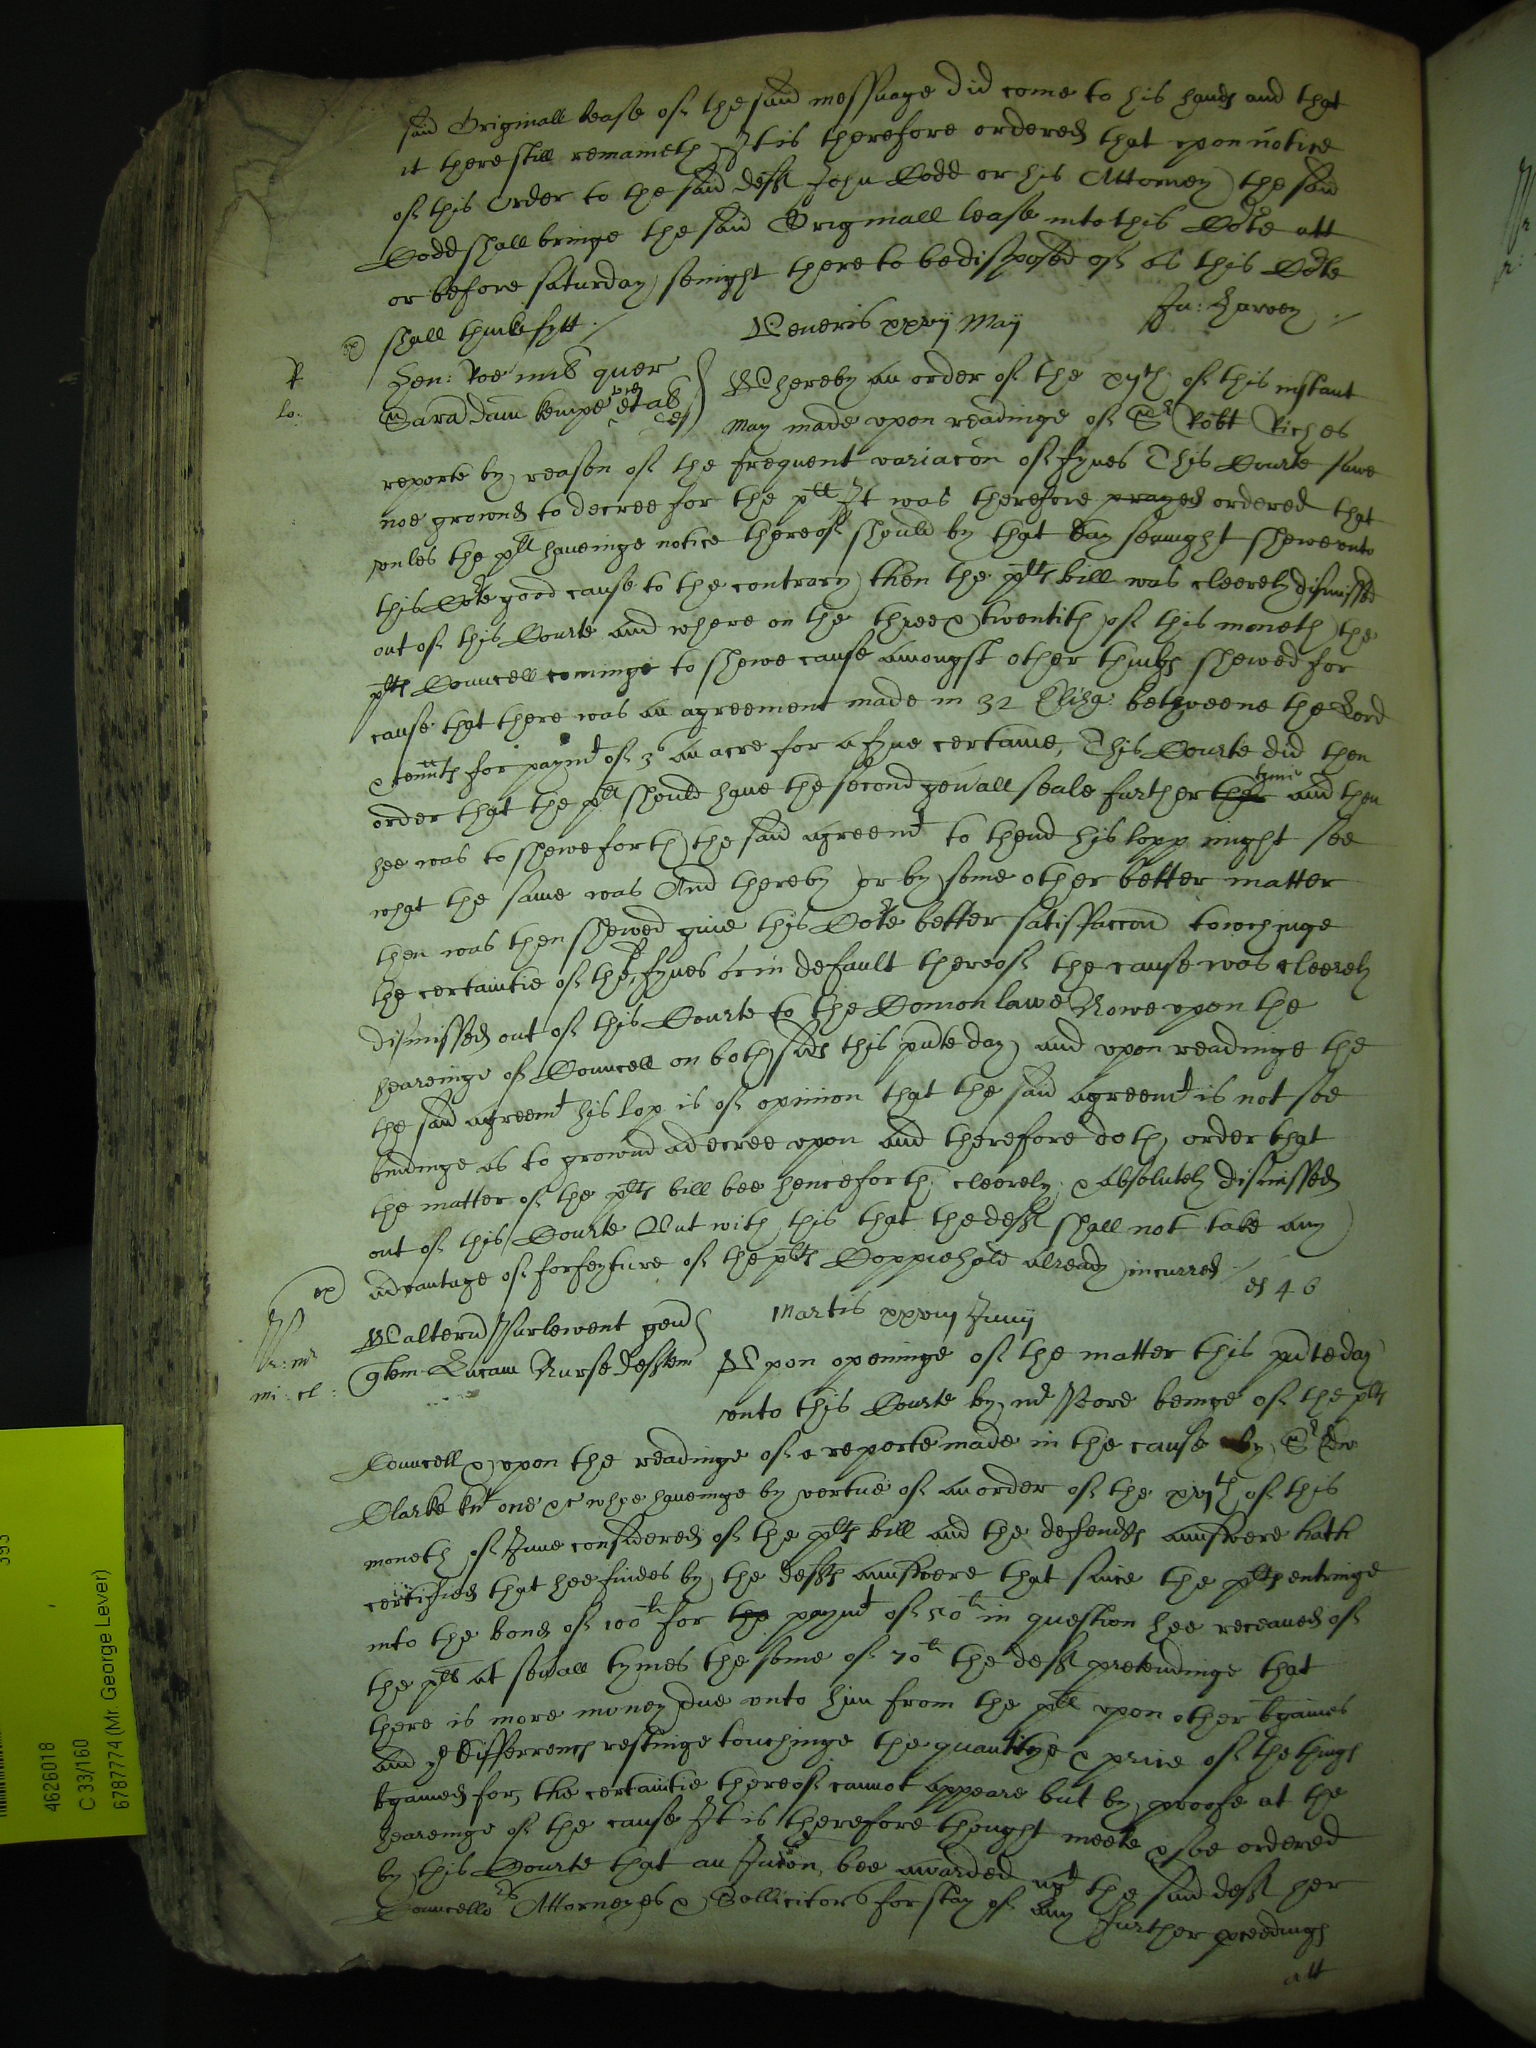 said Originall lease of the said messuage did come to his hands and that
it there still remaineth It is therefore ordered that upon notice
of this Order to the said deft John Codd or his Attorney the said
Codd shall bringe the said Originall lease into this Co:te att
or before saturday senight there to be disposed of as this Co:te
shall thinke fytt
Jn: Harvey
Veneris xxvij Maij
R
lo:
Hen: Roe mil quer
Sara Dam Kempe et al def
Whereby an order of the xijth of this instant
May made upon readinge of Sr Robt Riches
reporte by reason of the frequent variacon of fynes This Courte sawe
noe grownd to decree for the plt It was therefore prayed ordered that
unles the plt haveinge notice thereof should by that day seavnight shewe unto
this Co:te good cause to the contrary then the plts bill was cleerely dismissed
out of this Courte and where on the three & twentith of this moneth the
plts Councell cominge to shewe cause amongst other things shewed for
cause that there was an agreement made in 32 Eliza: betweene the Lord
& tennts for paymt of 3s an acre for a fyne certaine, This Courte did then
order that the plt should have the second gen'all seale further the tyme and then
hee was to shewe forth the said agreemt to thend his lopp might see
what the same was And thereby or by some other better matter
then was then shewed give this Co:te better satisfaccon towchinge
the certaintie of the fynes or in default thereof the cause was cleerely
dismissed out of this Courte to the Comon lawe Nowe upon the
heareinge of Councell on both sids this pnte day and upon readinge the
the said agreemt his lop is of opinion that the said agreemt is not soe
bindinge as to grownd a decree upon and therefore doth order that
the matter of the plts bill bee henceforth cleerely & absolutely dismissed
out of this Courte But with this that the deft shall not take any
advantage of forfeyture of the plts Coppiehold already incurred
Martis xxviij Junij
mi: cl:
Walterus Purlewent gen
qtem Lucam Nurse defftem
Upon openinge of the matter this pnte day
unto this Courte by mr Pore beinge of the plts
Councell & upon the readinge of a reporte made in the cause by Sr Edw
Clarke knt one &c whoe haveinge by vertue of an order of the xvjth of this
moneth of June considered of the plts bill and the defendts aunswere hath
certified that hee findes by the defts aunswere that since the plts entringe
into the bond of 100li for the paymt of 50li in question hee receaved of
the plt at sev'all tymes the some of 70li the deft pretendinge that
there is more money due unto him from the plt upon other bgaines
and ye differrencs restinge touchinge the quantitye & price of the things
bgained for, the certaintie thereof cannot appeare but by proofe at the
heareinge of the cause It is therefore thought meete & soe ordered
by this Courte that an Juncon bee awarded agt the said deft her
Councello:rs Attorneyes & Sollicitors for stay of any further pceedings
att
4626018
C 33/160
6787774 (Mr George Lever)